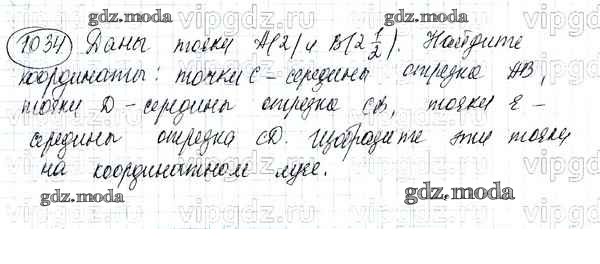 gdz.moda gdz.moda
1034 Даны точки A(2) и B(2 1/2). Найдите
координаты: точки C – середины отрезка AB,
точки D – середины отрезка CB, точки E –
середины отрезка CD. Изобразите эти точки
на координатном луче.
gdz.moda gdz.moda
vipgdz.ru